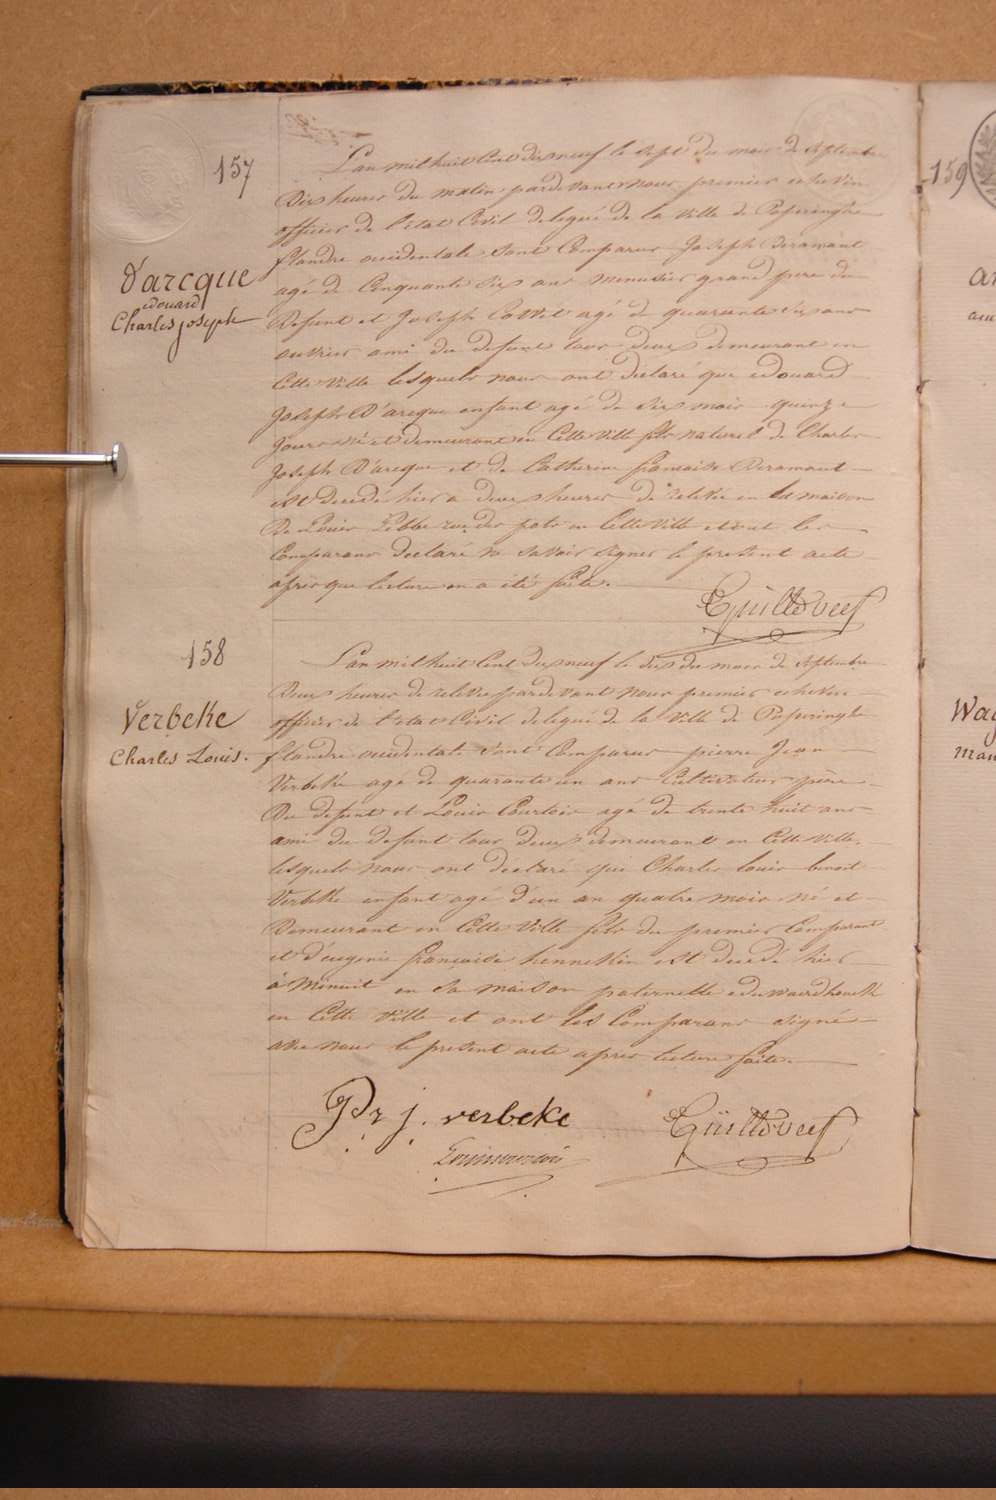 157
D'arcque
edouard
Charles joseph
L'an mil huit Cent dix neuf le sept du mois de Septembre
Dix heures du matin pardevant nous premier echevin
officier de l'etat Civil delegué de la Ville de Poperinghe
flandre occidentale sont Comparus Joseph Deramaut
agé de Cinquante six ans menuisier grand pere du
Defunt et Joseph agé de quarante six ans
ouvrier ami du defunt tous deux demeurant en
Cette Ville lesquels nous ont declaré que edouard
Joseph D'arcque enfant agé de six mois quinze
jours né et demeurant en Cette Ville fils naturel de Charles
Joseph D'arcque et de Catherine francoise Deramaut
est decedé hier a deux heures de relevée en la maison
De Louis rue des pots en Cette Ville et ont les
Comparans declaré ne savoir signer le present acte
après que lecture en a été faite.
158
Verbeke
Charles Louis.
L'an mil huit Cent dix neuf le dix du mois de Septembre
Deux heures de relevée pardevant nous premier echevin
officier de l'etat Civil delegué de la Ville de Poperinghe
flandre occidentale sont Comparus pierre Jean
Verbeke agé de quarante un ans Cultivateur père
Du defunt et Louis Courtois agé de trente huit ans
ami du defunt tous deux demeurant en Cette Ville.
lesquels nous ont declaré que Charles louis benoit
Verbeke enfant agé d'un an quatre mois né et
Demeurant en Cette Ville fils du premier Comparant
et d'eugenie françoise hennekin est decedé hier
à minuit en sa maison paternelle
en Cette Ville et ont les Comparans signé
avec nous le present acte apres lecture faite.
Pr j. verbeke
159